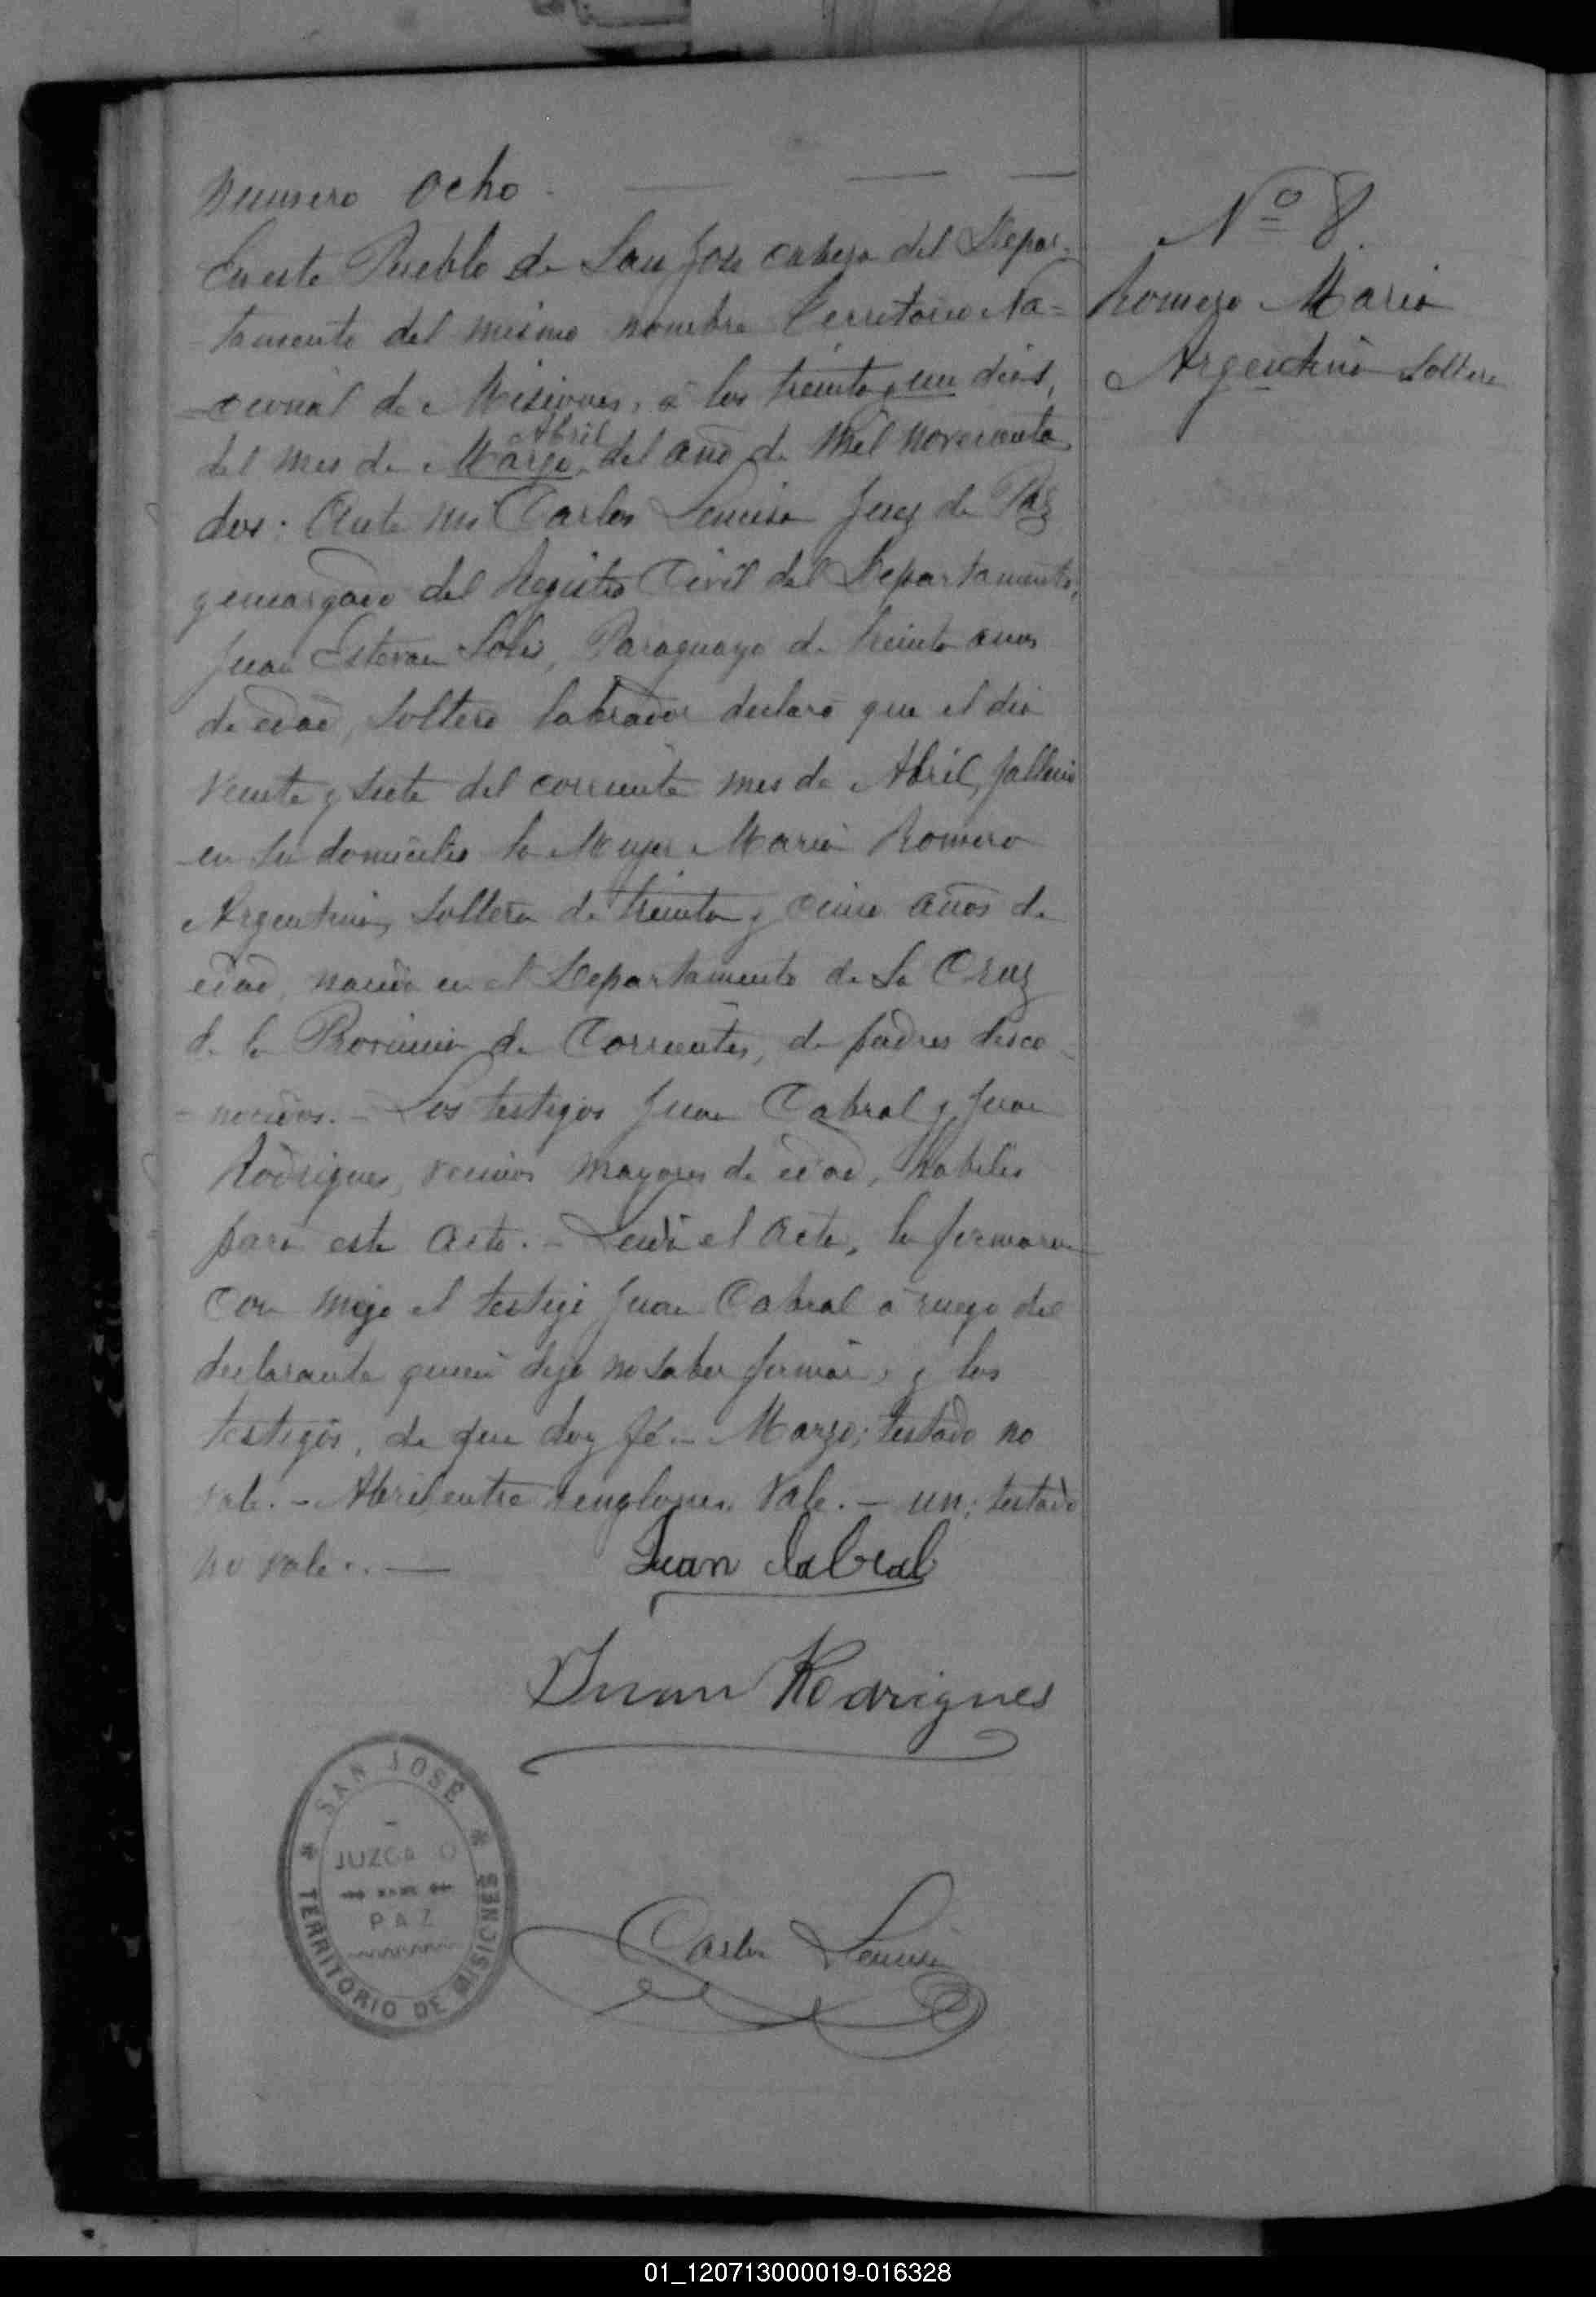 Numero Ocho.
En este Pueblo de San José cabeza del Depar-
tamento del mismo nombre Territorio Na-
cional de Misiones, á los treinta y un dias,
Abril
del mes de Marzo, del año de Mil novecientos
dos: Ante mi Carlos Juez de Paz
y encargado del Registro Civil del Departamento,
Juan Estevan Solis, Paraguayo de treinta años
de edad, Soltero labrador declaró que el dia
veinte y siete del corriente mes de Abril, falleció
en su domicilio la Mujer Maria Romero
Argentina, Soltera de treinta y cinco años de
edad, nacida en el Departamento de La Cruz
de la Provincia de Corrientes, de padres desco-
nocidos. - Los testigos Juan Cabral y Juan
Rodrigues, vecinos mayores de edad, habiles
para este acto. - Leida el acta, la firmaron
con migo el testigo Juan Cabral á ruego del
declarante quien dijo no saber firmar, y los
testigos, de que doy fé. - Marzo; testado no
vale. - Abril, entre renglones. Vale. - un; testado
no vale. -
Juan Cabral
Juan Rodrigues
Carlos
SAN JOSÉ
JUZGADO
PAZ
TERRITORIO DE MISIONES
Nº 8.
Romero Maria
Argentina Soltera
01_120713000019-016328